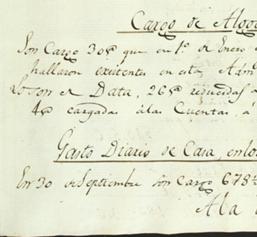 Cargo de Algo
Son Cargo 30 que en 1º de Enero
hallaron existentes en esta Adm
Lo son de Data, 26 reducidas a
4 cargadas á las Cuentas, á
Gasto Diario de Casa, en los
En 30 de Septiembre son Cargo 678
A la